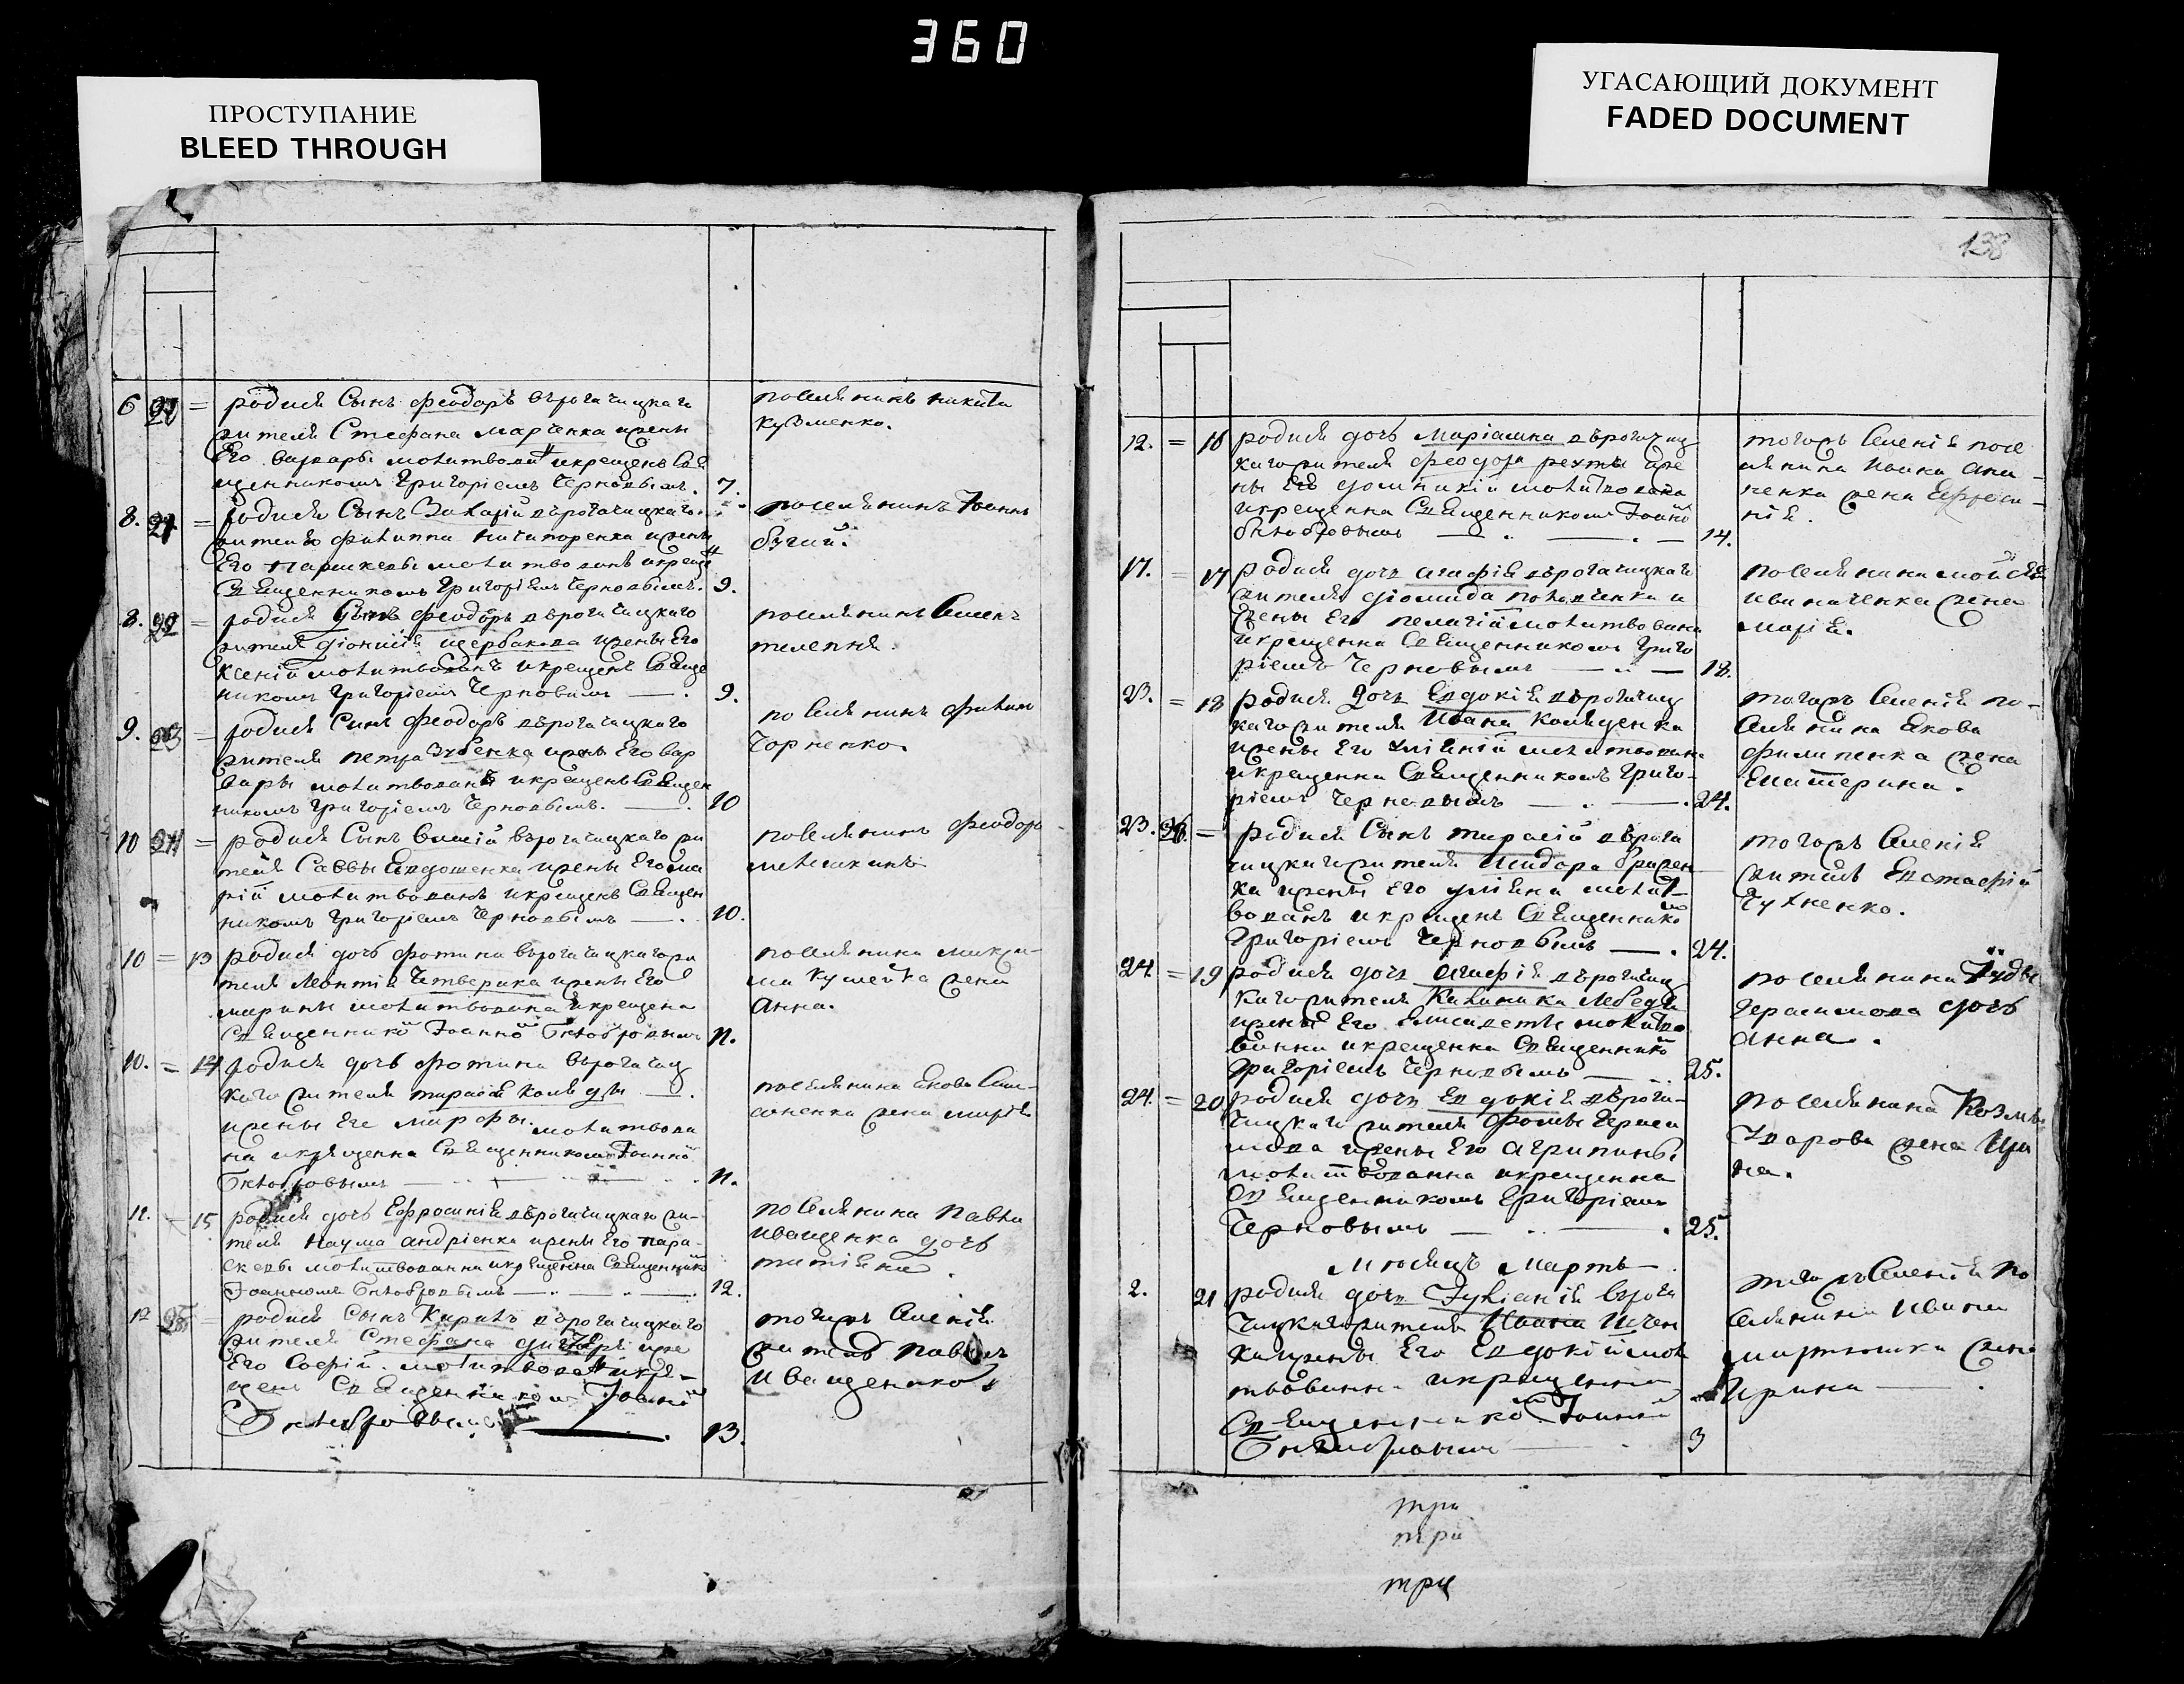 360
ПРОСТУПАНИЕ
BLEED THROUGH
УГАСАЮЩИЙ ДОКУМЕНТ
FADED DOCUMENT
138
6 =
родися Сынъ феодоръ върогачицкаго
жителя Стефана марченка ижены
Его варвары молитвован икрещенъ
щенникомъ Григоріемъ Черновымъ. 7.
поселянинъ никита
кузменко.
8. 21 =
родися Сынъ Захарій върогачицкаго
жителя филиппа ничипоренка ижены
Его параскевы молитвованъ икреще
Священникомъ Григоріемъ Черновымъ. 9.
поселянинъ Іоаннъ
бугай.
8. 22 =
родися Сынъ феодоръ върогачицкаго
жителя діонисія щербакова ижены Его
ксеніи молитвованъ икрещенъ Свяще
никомъ Григоріемъ Черновымъ 9.
поселянинъ Семенъ
телепня.
9. 23 =
родися Сынъ феодоръ върогачицкаго
жителя петра Зубенка ижены Его вар
вары молитвованъ икрещенъ Священ
никомъ Григоріемъ Черновымъ. 10
поселянинъ филипъ
Чорненко.
10 24 =
родися Сынъ върогачицкаго жи
теля Саввы Евдошенка ижены Его ма
ріи молитвованъ икрещенъ Священ
никомъ Григоріемъ Черновымъ 10.
поселянинъ феодоръ
10 = 13
родися дочь фотина върогачицкаго жи
теля леонтія Четверика ижены Его
марины молитвована икрещена
Священнико Іоанно Бѣлобровымъ 11.
поселянина
жена
Анна.
10. = 14
родися дочь фотина върогачиц
каго жителя тарасія коляды
ижены Его марфы молитвова
на икрещенна Священникомъ Іоанно
Бѣлобровымъ 11.
поселянина Якова Сам-
соненка жена марія
11. = 15
родися дочь Ефросинія върогачицкаго жи-
теля наума андріенка ижены Его пара-
скевы молитвованна икрещенна Священнико
Іоанномъ Бѣлобровымъ 12.
поселянина павла
иващенка дочь
татіана.
12 25 =
родися Сынъ Кирилъ върогачицкаго
жителя Стефана ижe
Его Софіи молитвован икре-
щенъ Священникомъ Іоанно
Бѣлобровымъ 13.
тогожъ Селенія
житель павелъ
Иващенко
12. = 16
родися дочь маріамна върогачиц
каго жителя феодора рехты иже
ны Его домникіи молитвована
икрещенна Священникомъ Іоанно
Бѣлобровымъ 14.
тогожъ Селенія посе
лянина ивана Ана
ненка жена Ефроси-
нія.
17. = 17
родися дочь агафія върогачицкаго
жителя діомида ковалченка и
жены Его пелагіи молитвована
икрещенна Священникомъ Григо
ріемъ Черновымъ 18.
поселянина мойсея
иваниченка жена
марія.
23. = 18
родися дочь Евдокія върогачиц
каго жителя Ивана коляденка
ижены Его молитвована
икрещенна Священникомъ Григо-
ріемъ Черновымъ 24.
тогожъ Селенія по-
селянина Якова
филипенка жена
Екатерина.
23. 26. =
родися Сынъ тарасій върога
чицкаго жителя исидора
ка ижены Его уліяны молит
вованъ икрещенъ Священнико
Григоріемъ Черновымъ 24.
тогожъ Селенія
житель Евстафій
Чухненко.
24. = 19
родися дочь агафія върогачиц
каго жителя Калиника лебедя
ижены Его Елисаветы молитво
ванна икрещенна Священнико
Григоріемъ Черновымъ 25.
поселянина Іуды
Герасимова дочь
анна.
24. = 20
родися дочь Евдокія върога-
чицкаго жителя фомы
ижены Его агрипины
молитвованна икрещенна
Священникомъ Григоріемъ
Черновымъ 25.
поселянина Козмы
жена Ири
на.
Мѣсяцъ Мартъ
2. 21
родися дочь Іуліанія върога
чицкаго жителя Ивана
ижены Его Евдокіи мол
твованна икрещенна
Священнико Іоанно
Бѣлобровымъ 3
тогожъ Селенія по
селянина Ивана
жена
Ирина
три
три
три